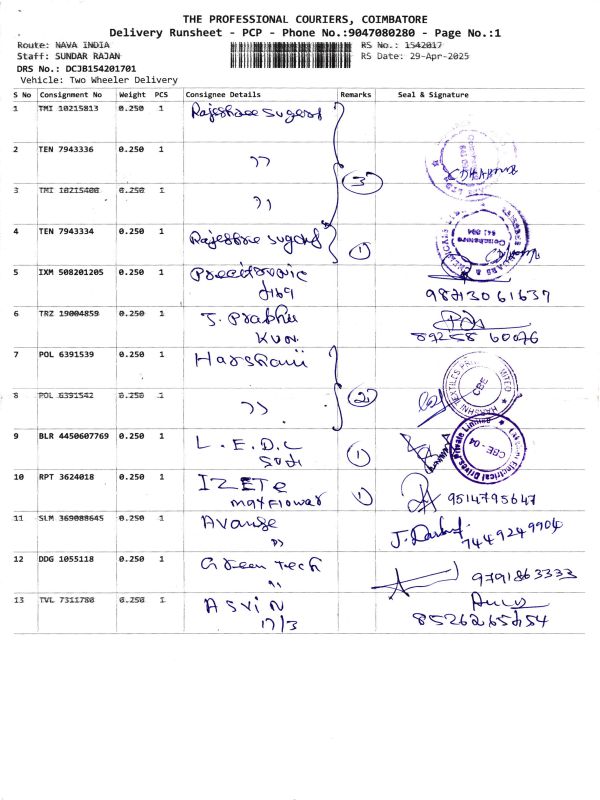 THE PROFESSIONAL COURIERS, COIMBATORE
Delivery Runsheet - PCP - Phone No.:9047080280 - Page No.:1
Route: NAVA INDIA RS No.: 1542017
Staff: SUNDAR RAJAN RS Date: 29-Apr-2025
DRS No.: DCJB154201701
Vehicle: Two Wheeler Delivery
S No Consignment No Weight PCS Consignee Details Remarks Seal & Signature
1 TMI 10215813 0.250 1 Rajeshree
2 TEN 7943336 0.250 1 ,,
3 TMI 10215408 0.250 1 ,,
3
4 TEN 7943334 0.250 1 Rajeshree 1
5 IXM 508201205 0.250 1
6 TRZ 19004859 0.250 1 J. Prabhu
KVN
89258 60076
7 POL 6391539 0.250 1 Harshani
8 POL 6391542 0.250 1 ,,
2
CBE
9 BLR 4450607769 0.250 1 L.E.D.C 1
CBE - 04
10 RPT 3624018 0.250 1 IZETE 1 9514795647
mayflower
11 SLM 369088645 0.250 1 7449249904
,,
12 DDG 1055118 0.250 1 Green Tech 9791863333
,,
13 TVL 7311780 0.250 1 ASVIN
17/3